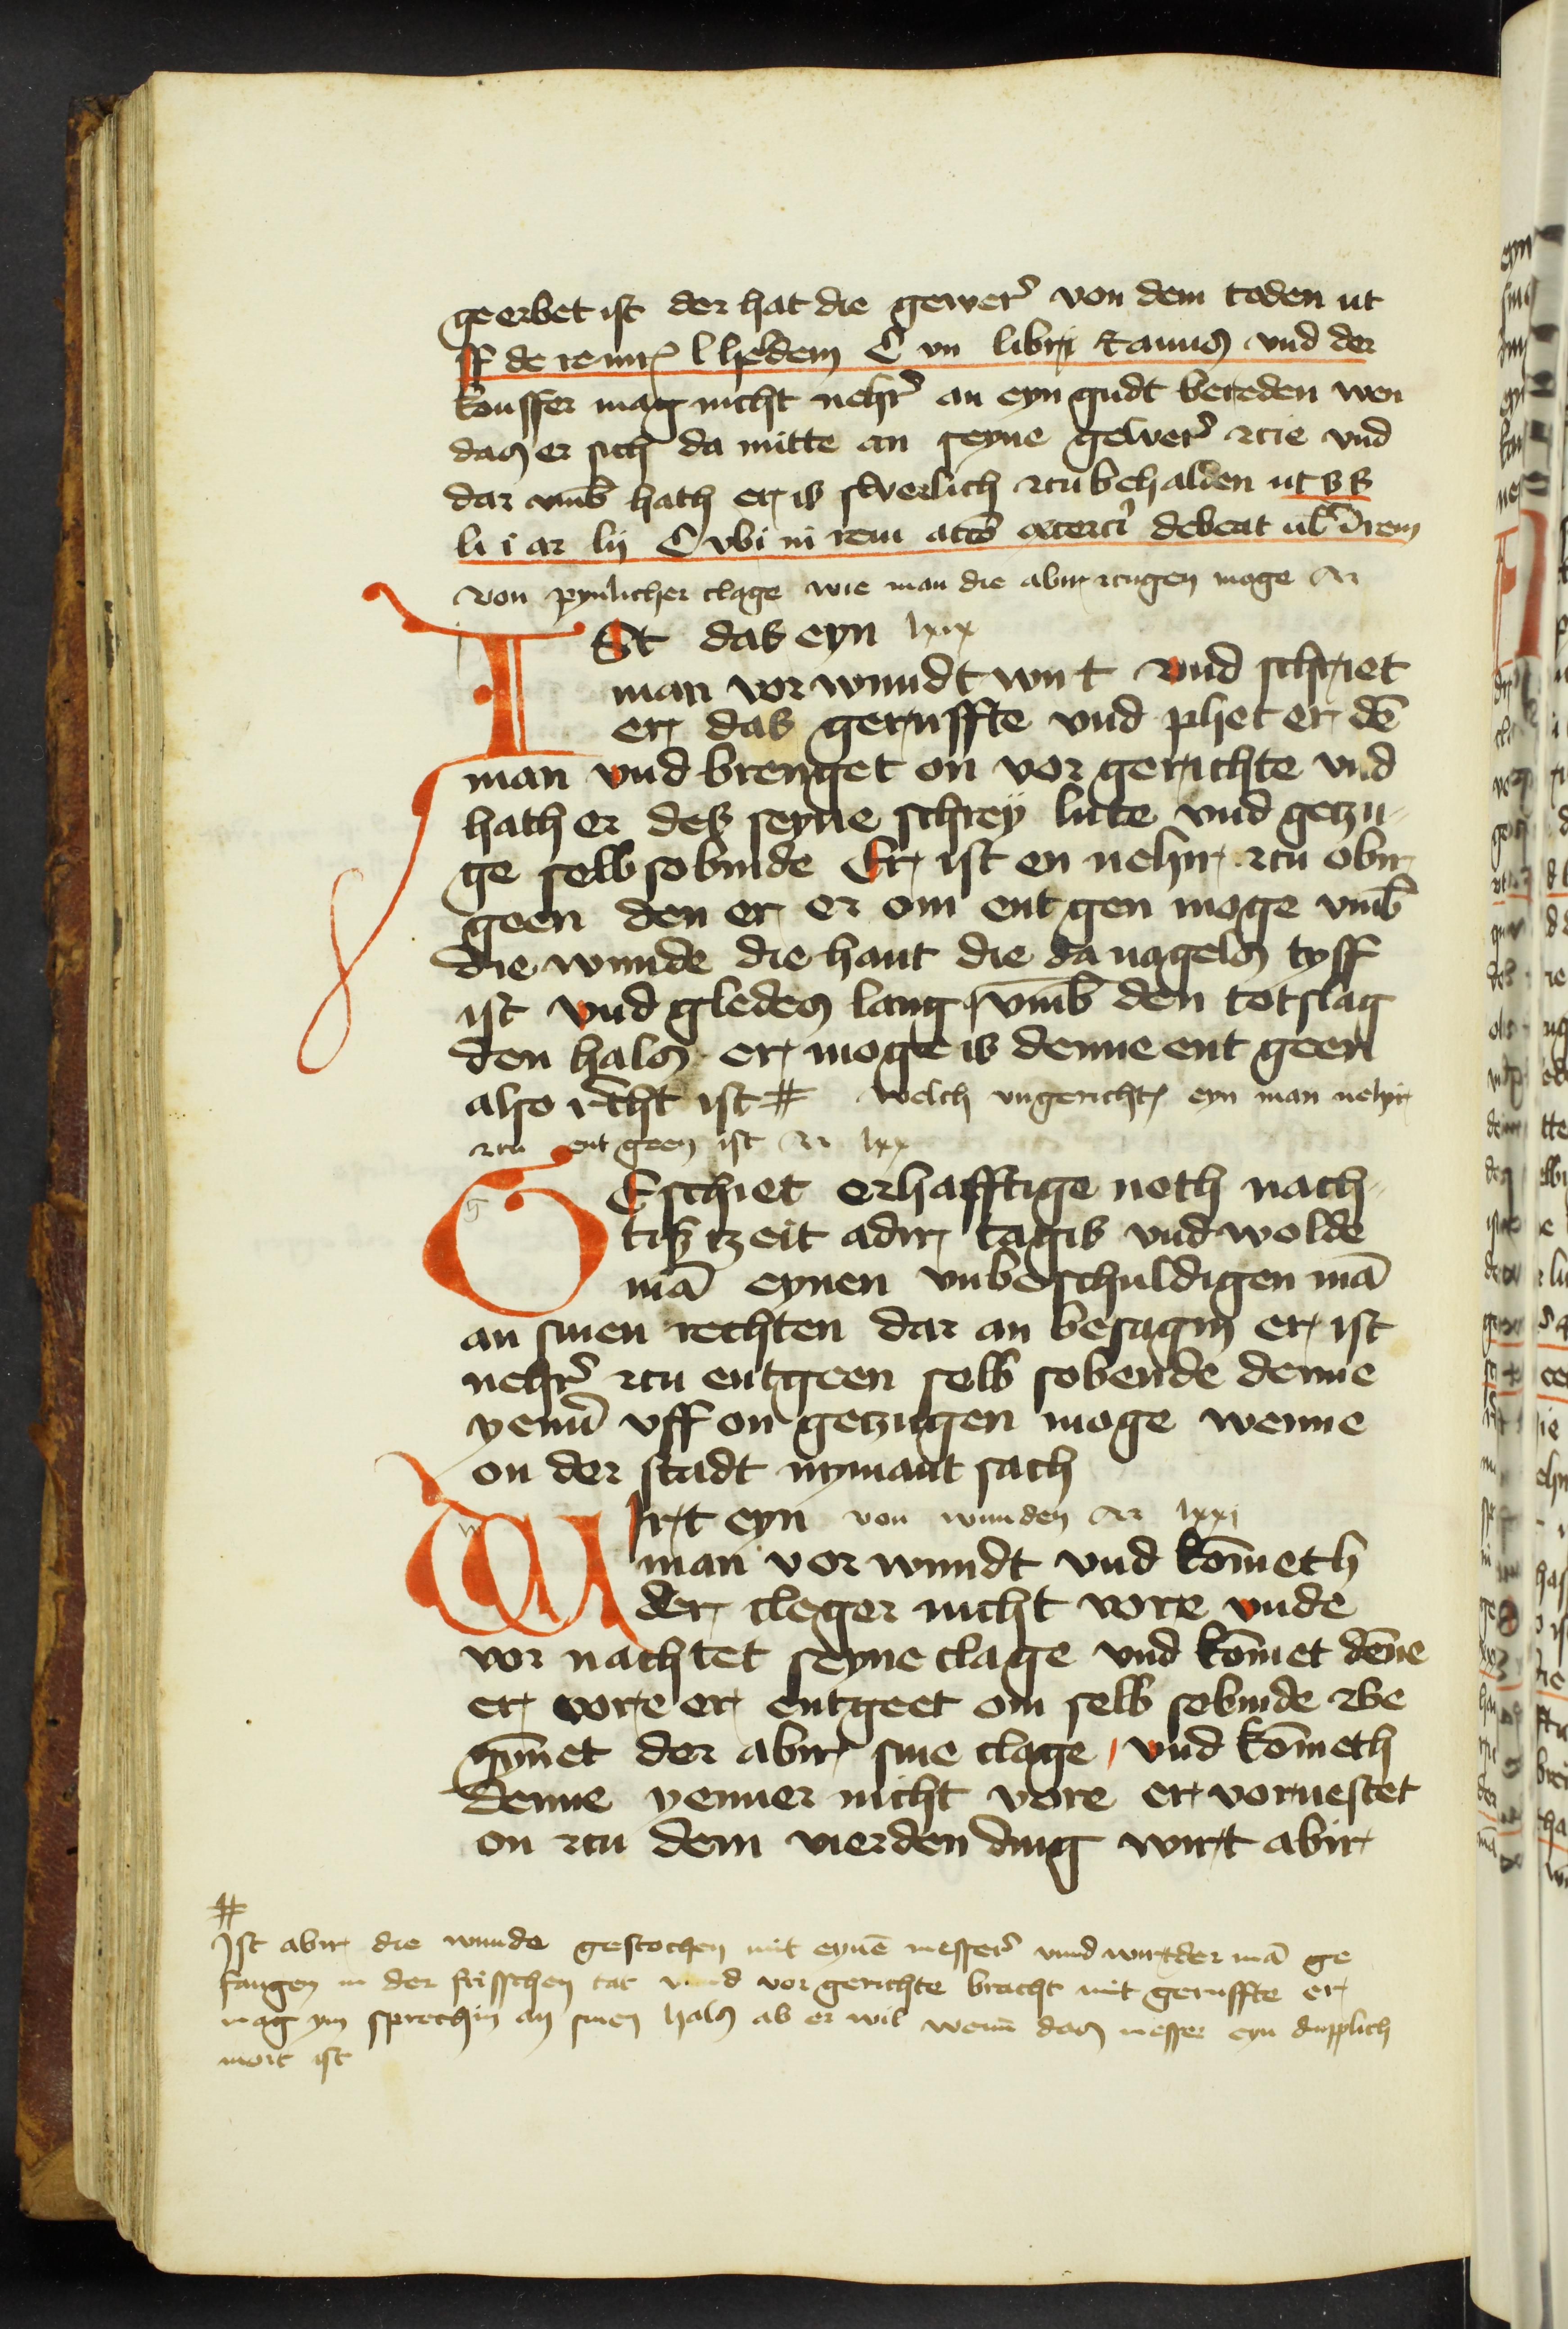 geerbet ist der hat die gewer von dem toden ut
ff de
kouffer mag nicht neher an eyn gudt bereden wen
das er sich da mitte an seyne gewer zcie vnd
dar vmb hath er is swerlich zcu behalden ut ss
li i ar lij C vbi in rem debeat
von pynlicher clage wie man die abir zcugen moge Ar
ISt das eyn lxix
man vor wundt wirt vnd schriet
er das geruffte vnd phet er dē
man vnd brenget on vor gerichte vnd
hath er des seyne schrey lute vnd getzu-
ge selb sobinde Er ist en nehir zcu obir
geen den er er om ent gen moge vmb
die wunde die hant die da nagels tyff
ist vnd gledes lang vmb den totslag
den hals er moge is denne ent geen
also recht ist # welch vngericht eyn man nehir
zcu ent geen ist Ar lxx
GEschiet erhafftige noth nach-
tis tzeit adir tagis vnd wolde
mā eynen vnbeschuldigen mā
an sinen rechten dar an besagin er ist
neher zcu entgeen selb sobende denne
yenir vff on getzugen moge wenne
on der stadt nymant sach
WIrt eyn von wunden Ar lxxi
man vor wundt vnd kōmeth
der cleger nicht vore vnde
vor nachtet seyne clage vnd kōmet dēne
er vore er entgeet om selb sobinde Be
gȳnet der abir sine clage vnd kōmeth
denne yenner nicht vore er voruestet
on zcu dem vierden ding wirt abir
#
Ist abir die wunde gestochen mit eynē messer vnnd wirt der mā ge
fangen in der frisschen tat vnd vor gerichte bracht mit geruffte er
mag ym sprechin an sinen hals ab er wil wenn das messer eyn duplich
mort ist